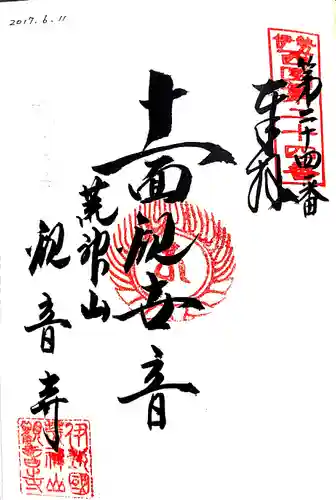 2017.6.11
第二十四番
奉拝
十一面観世音
荒神山
観音寺
伊勢國
荒神山
觀音寺